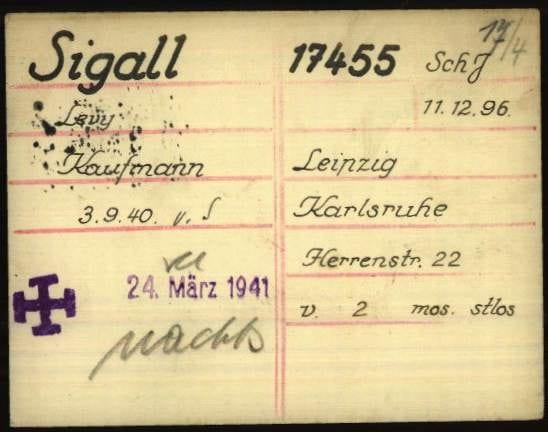 Sigall 17455 SchJ 17/4
Levy 11.12.96.
Kaufmann Leipzig
3.9.40. v. S Karlsruhe
Herrenstr. 22
24. März 1941
v. 2 mos. stlos
nachts